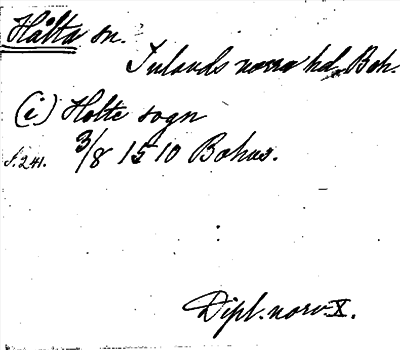 Hålta sn.
Inlands norra hd, Boh.
(i) Holte sogn
s. 241. 3/8 1510 Bohus.
Dipl. norv. X.